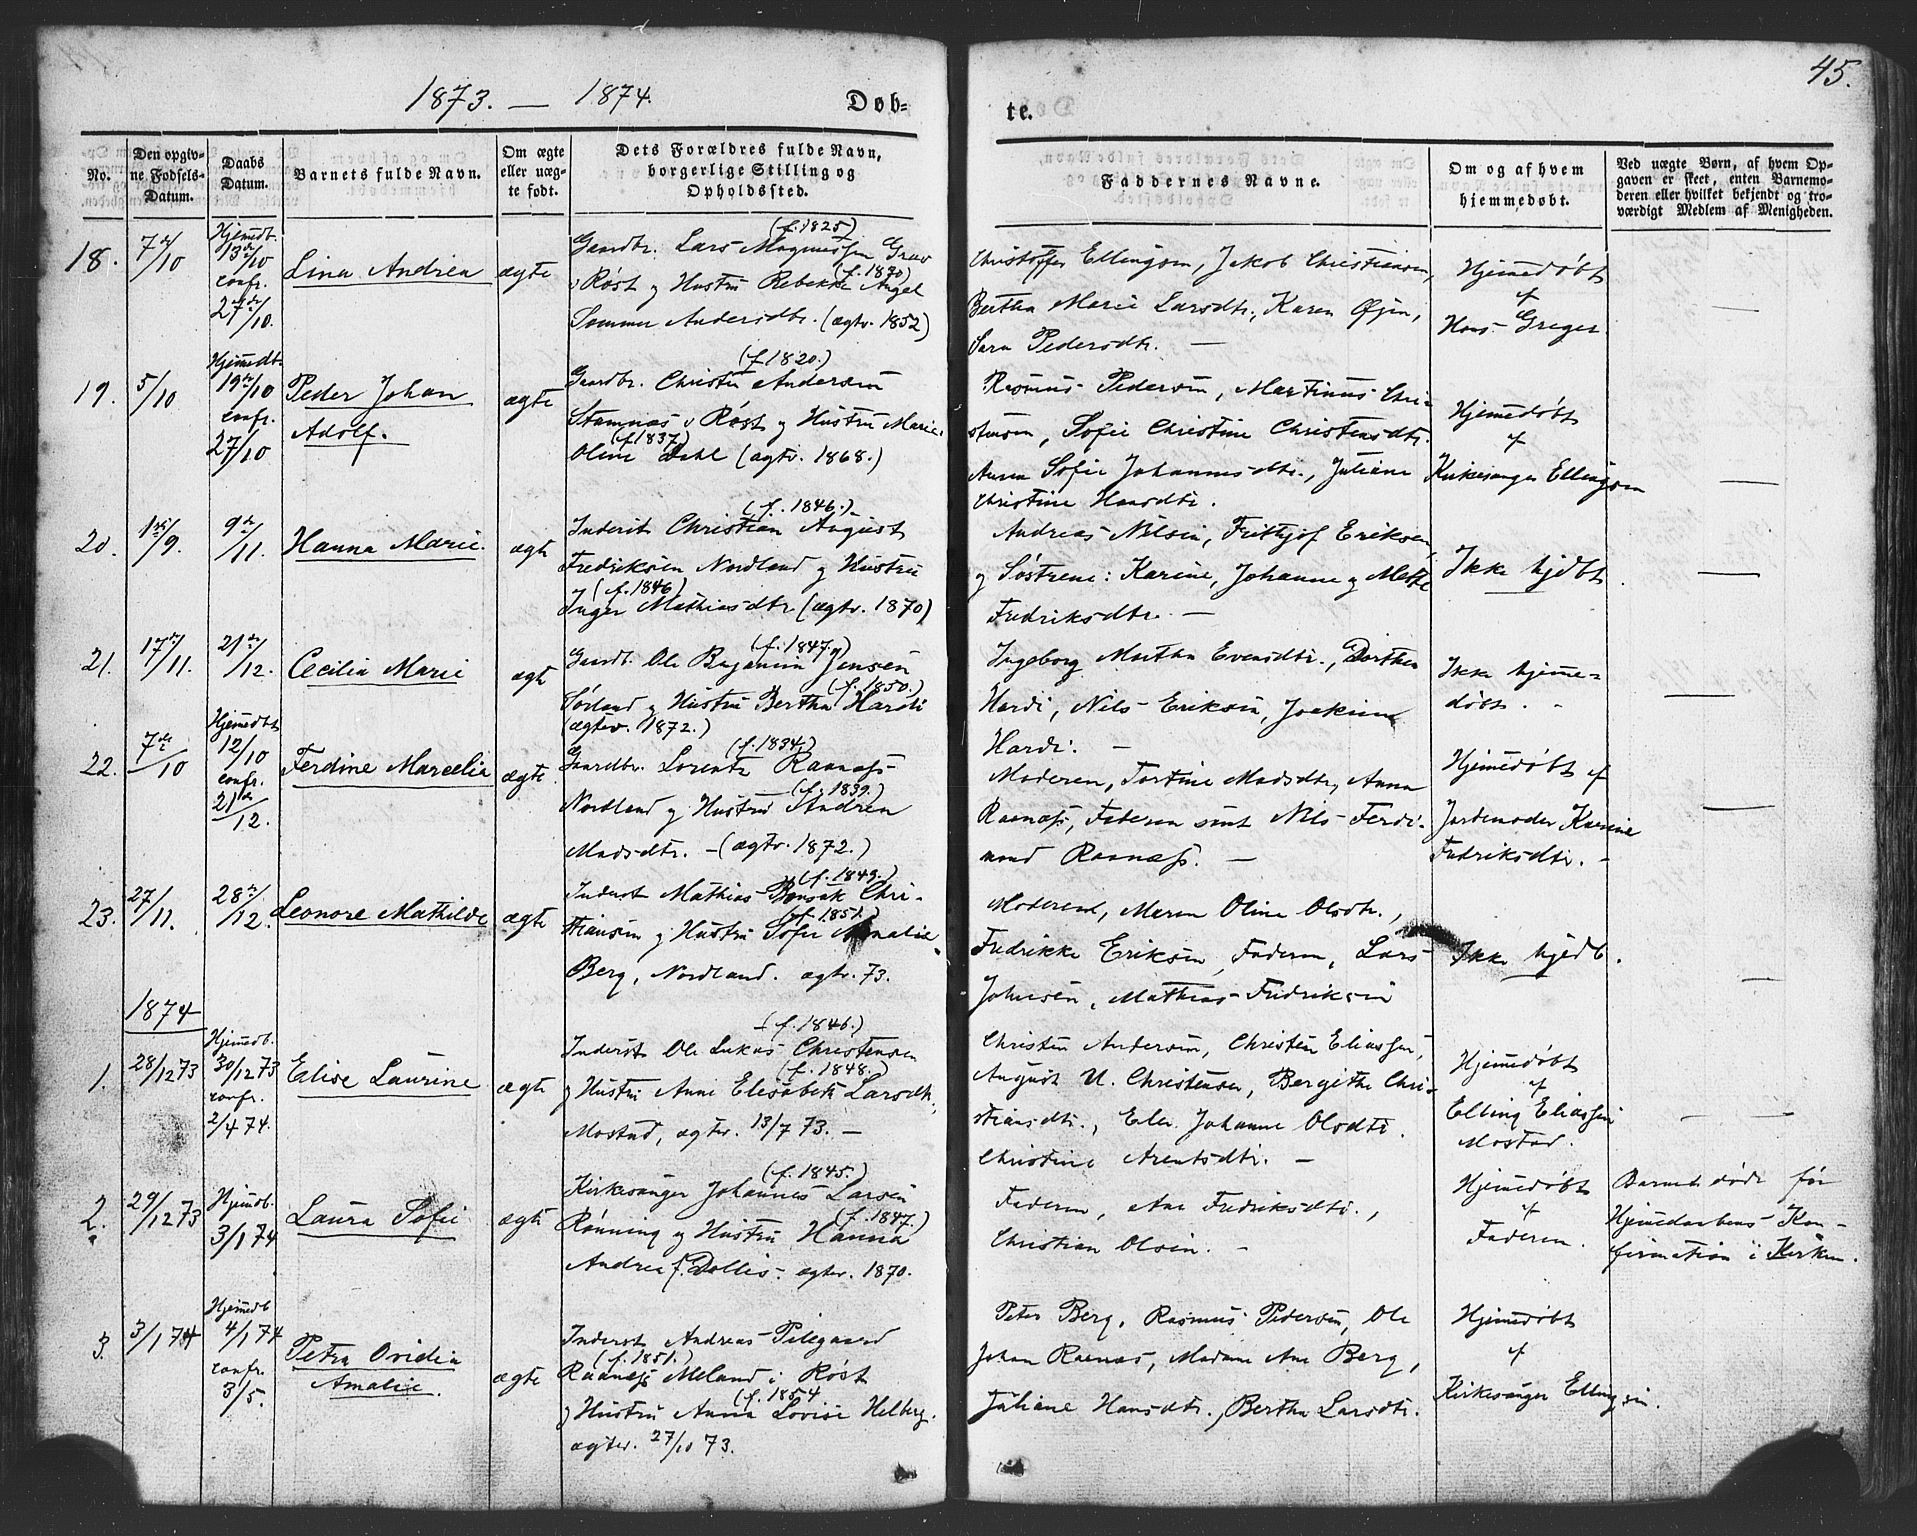 45.
1873. — 1874.
Døb-
te.
No.
Den opgiv-
ne Fødsels-
Datum.
Daabs
Datum.
Barnets fulde Navn.
Om ægte
eller uæg-
te født.
Dets Forældres fulde Navn,
borgerlige Stilling og
Opholdssted.
Faddernes Navne.
Om og af hvem
hjemmedøbt.
Ved uægte Børn, af hvem Op-
gaven er skeet, enten Barnemo-
deren eller hvilket bekjendt og tro-
værdigt Medlem af Menigheden.
18.
7de/10
Hjemedb.
13de/10
conf.
27de/10.
Lina Andrea
ægte
(f. 1825)
Gaardbr. Lars Magnussen Grav
(f. 1870)
v Røst og Hustru Rebekka Angel
Sommer Andersdtr. (ægtv. 1852)
Christoffer Ellingsen, Jakob Christiansen,
Bertha Marie Larsdtr., Karen Øjen,
Sara Pedersdtr. —
Hjemedøbt
af
Hans Greger
—
19.
5/10
Hjemedbt.
19de/10
conf.
27/10
Peder Johan
Adolf.
ægte
(f. 1820.)
Gaardbr. Christen Andersen
Stamnæs v Røst og Hustru Marie
(f. 1837)
Oline Dahl (ægtv. 1868.)
Rasmus Pedersen, Martinus Chri-
stensen, Sofie Christine Christensdtr.
Anna Sofie Johannesdtr., Juliane
Christine Hansdtr.
Hjemedøbt
af
Kirkesanger Ellingsen
—
20.
1ste/9.
9de/11.
Hanna Marie.
ægte
(f. 1846.)
Inderst Christian August
Fredriksen Nordland og Hustru
(f. 1846)
Inger Mathiasdtr. (ægtv. 1870)
Andreas Nilsen, Frithjof Eriksen,
og Søstrene: Karine, Johanne og Mette
Fredriksdtr. —
Ikke hjdbt.
—
21.
17de/11.
21de/12.
Cecilia Marie
ægte
(f. 1847.)
Gaardb. Ole Benjamin Jensen
(f. 1850.)
Sørland og Hustru Bertha Hardi
(ægtev. 1872.)
Ingeborg Martha Evensdtr., Dorthea
Hardi, Nils Eriksen, Joakim
Hardi. —
Ikke hjeme-
døbt.
—
22.
7de/10
Hjemedbt
12/10
conf.
21de/12.
Ferdine Marcelia
ægte
(f. 1834.)
Gaardbr. Lorentz Raanæss
(f. 1839.)
Nordland og Hustru Andrea
Madsdtr. — (ægtv. 1872.)
Moderen, Tortine Madsdtr, Anna
Raanæss, Faderen samt Nils Ferdi-
nand Raanæss. —
Hjemedøbt af
Jordemoder Karine
Fredriksdtr. -
—
23.
27/11.
28de/12.
Leonore Mathilde
ægte
(f. 1849.)
Inderst Mathias Bonsak Chri-
(f. 1851.)
stiansen og Hustru Sofie Amalie
Berg, Nordland. ægtv. 73.
Moderen, Maren Oline Olsdtr.,
Fredrikke Eriksen, Faderen, Lars
Johnsen, Mathias Fredriksen
Ikke hjedb.
—
1874
1.
28/12 73
Hjemedb.
30/12 73
conf.
2/4 74.
Elise Laurine
ægte
(f. 1846.)
Inderst Ole Lukas Christensen
(f. 1848.)
og Hustru Anne Elisabeth Larsdtr.,
Mostad, ægtv. 13/7 73. —
Christen Andersen, Christen Eliassen,
August U. Christensen, Bergithe Chri-
stiansdtr., Elen Johanne Olsdtr.
Christine Arentsdtr. —
Hjemedøbt
af
Elling Eliassen
Mostad.
—
2.
29/12 73
Hjemdb.
3/1 74
Laura Sofie
ægte
(f. 1845.)
Kirkesanger Johannes Larsen
(f. 1847.)
Rønning og Hustru Hanna
Andrea f. Dollis. ægtv. 1870.
Faderen, Ane Fredriksdtr.,
Christian Olsen. —
Hjemedøbt
af
Faderen.
Barnet døde før
Hjemedaabens Kon-
firmation i Kirken.
3.
3/1 74
Hjemedb
4/1 74
conf.
3/5.
Petra Ovidia
Amalie.
ægte
Inderst Andreas Pilegaard
(f. 1851.)
Raanæss Meland i Røst
(f. 1854
og Hustru Anna Lovise Helberg.
ægtv. 27/10 73.
Peter Berg, Rasmus Pedersen, Ole
Johan Raanæs, Madame Ane Berg,
Juliane Hansdtr., Bertha Larsdtr.
Hjemedøbt
af
Kirkesanger Ellingsen.